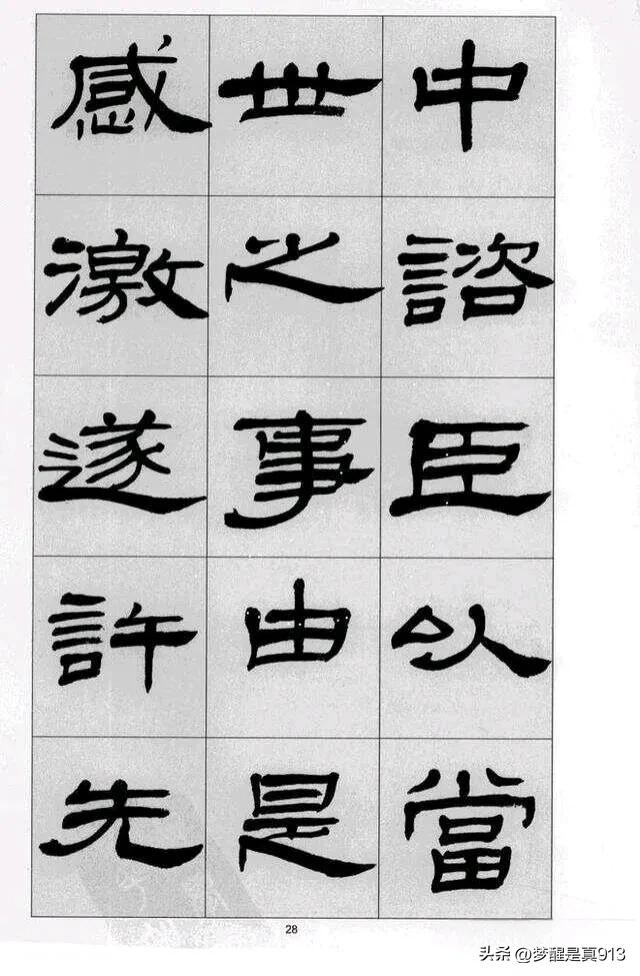 中諮臣以當
世之事由是
感激遂許先
28
头条 @梦醒是真913